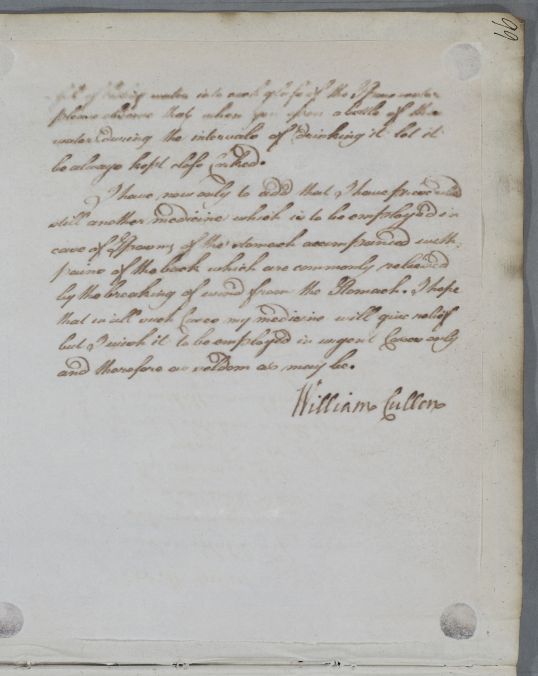 99
of boiling water into each glass of the Spaw water
please observe that when you open a bottle of the
water, during the intervals of drinking it let it
be always kept close Corked.
I have now only to add that I have prescribed
still another medicine which is to be employed in
case of Spasms of the stomach accompanied with
pains of the back which are commonly relieved
by the breaking of wind from the Stomach. I hope
that in all such Cases my medicine will give relief
but I wish it to be employed in urgent Cases only
and therefore as seldom as may be.
William Cullen